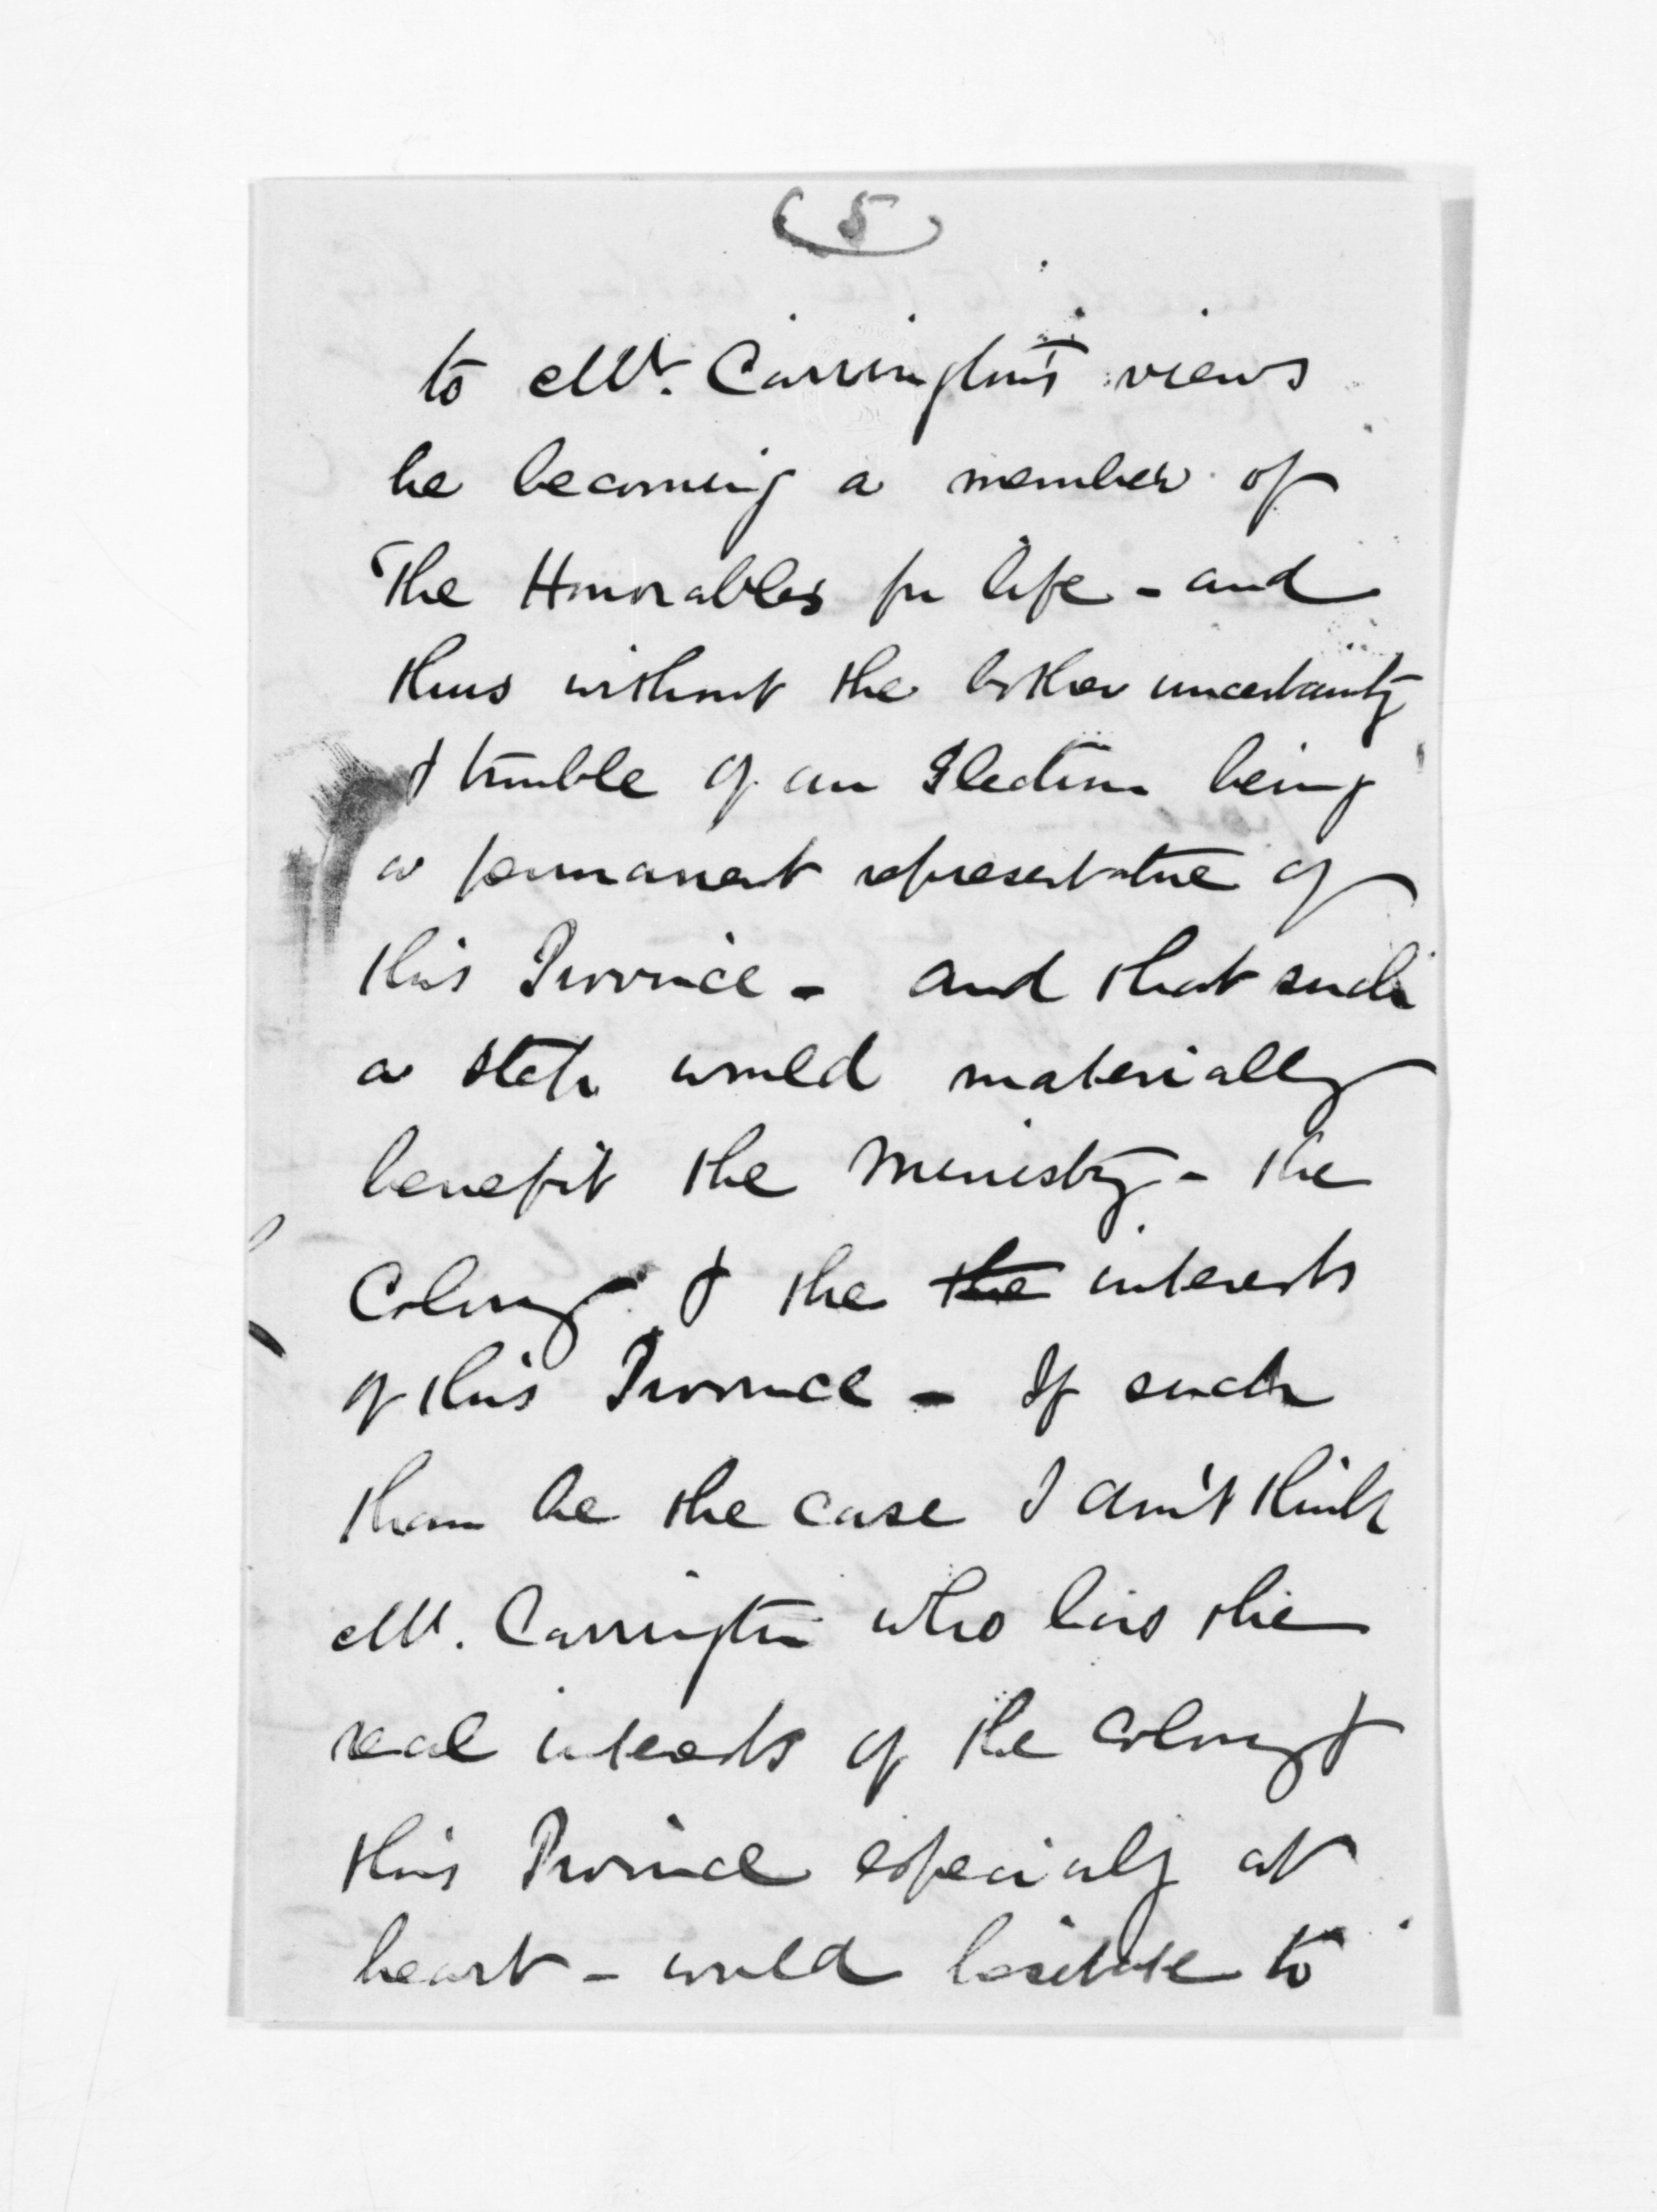 (5)
to Mr. Carrington's views
he becoming a member of
The Honorables for life - and
thus without the bother uncertainty
& trouble of an Election being
a permanent representative of
this Province - and that such
a step would materially
benefit the Ministry - the
Colony & the the interests
of this Province - If such
then be the case I don't think
Mr. Carrington who has the
real interests of the Colony &
this Province especialy at
heart - would hesitate to